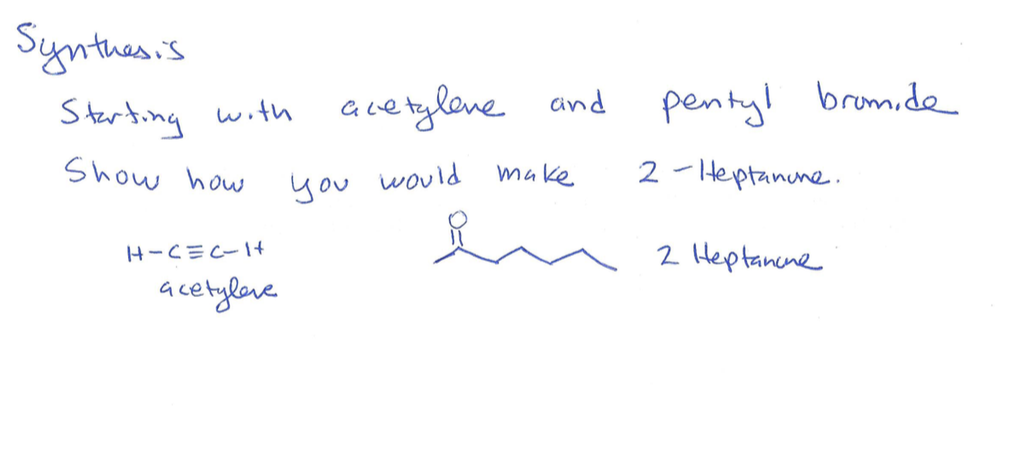 Synthesis
Starting with acetylene and pentyl bromide
Show how you would make 2-Heptanone.
O
H-C≡C-H 2 Heptanone
acetylene